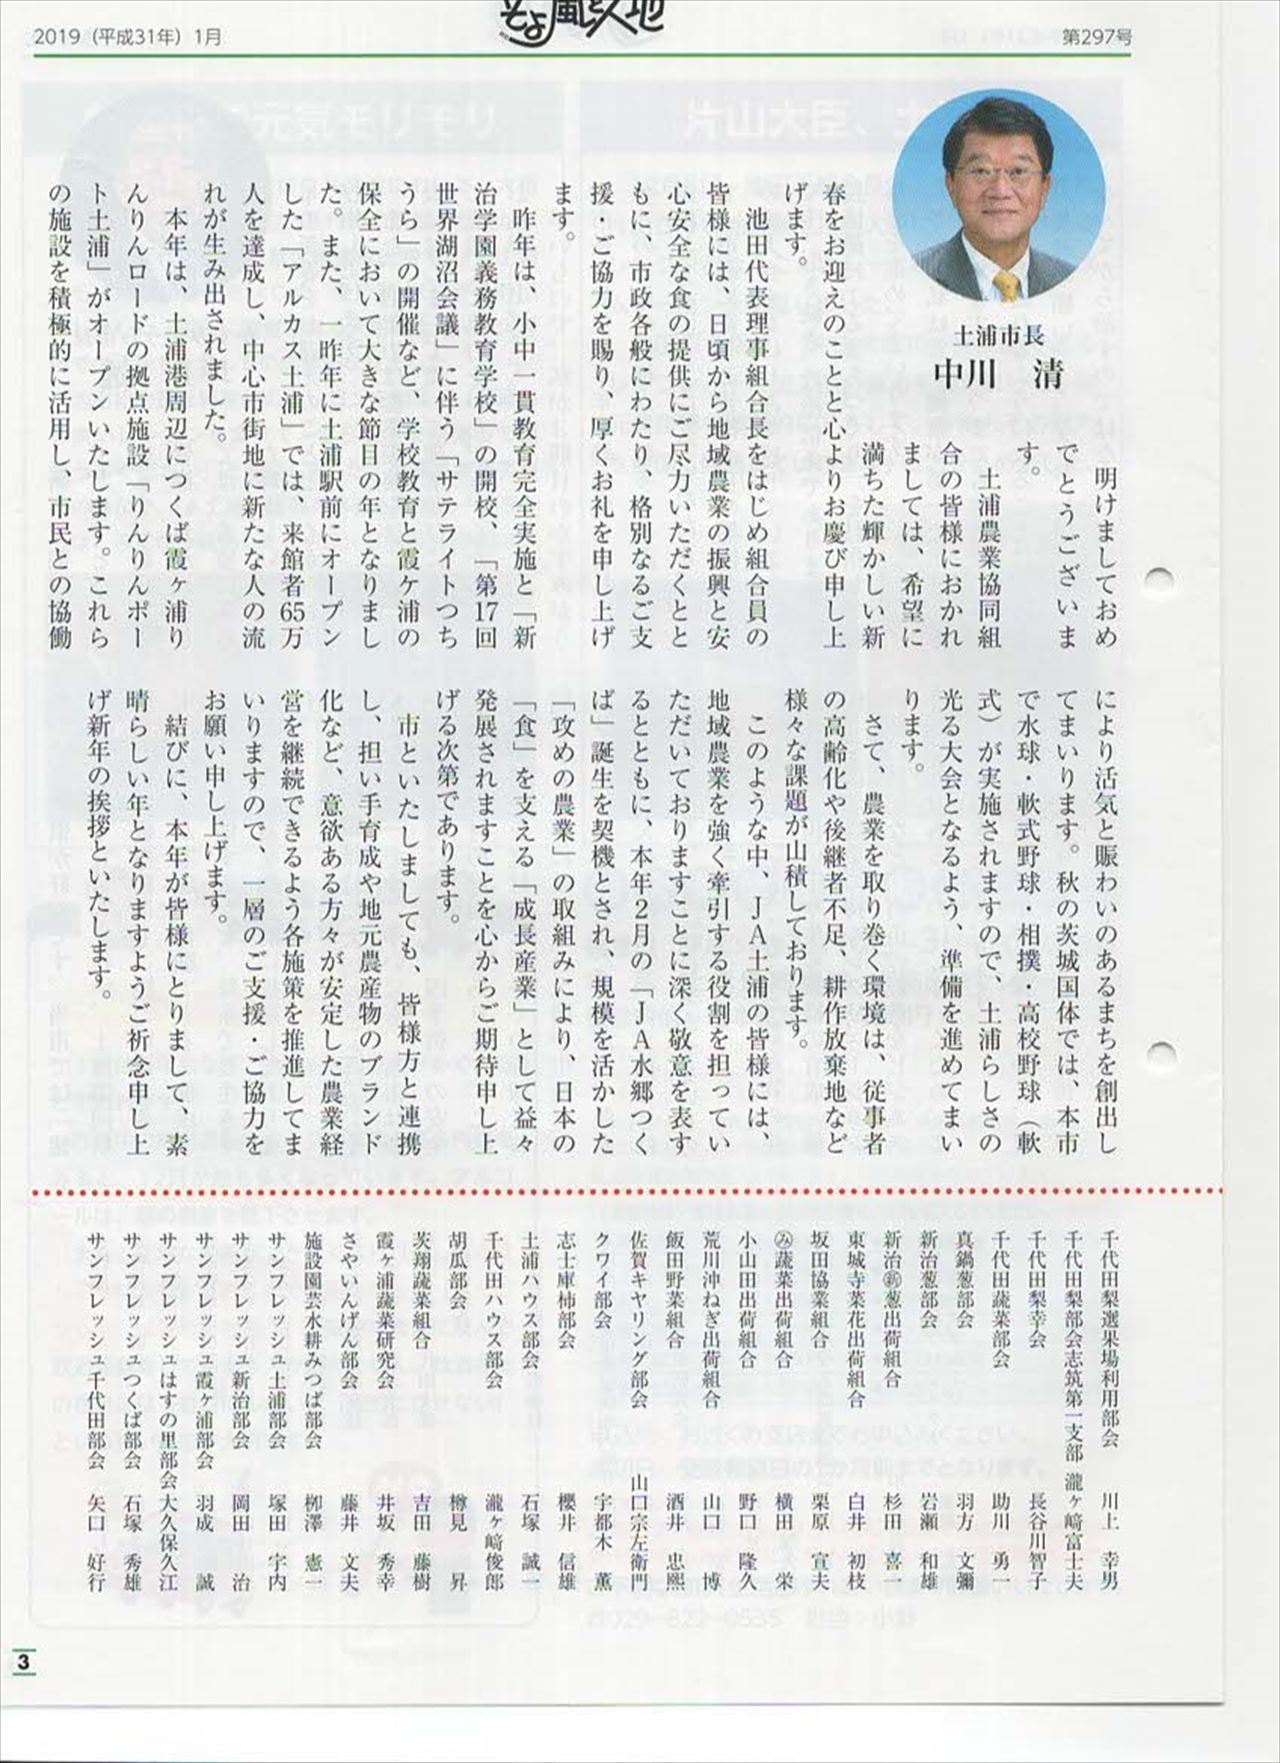 そよ風と大地
2019（平成31年）1月
第297号
土浦市長
中川　清
明けましておめ
でとうございま
す。
土浦農業協同組
合の皆様におかれ
ましては、希望に
満ちた輝かしい新
春をお迎えのことと心よりお慶び申し上
げます。
池田代表理事組合長をはじめ組合員の
皆様には、日頃から地域農業の振興と安
心安全な食の提供にご尽力いただくとと
もに、市政各般にわたり、格別なるご支
援・ご協力を賜り、厚くお礼を申し上げ
ます。
昨年は、小中一貫教育完全実施と「新
治学園義務教育学校」の開校、「第17回
世界湖沼会議」に伴う「サテライトつち
うら」の開催など、学校教育と霞ヶ浦の
保全において大きな節目の年となりまし
た。また、一昨年に土浦駅前にオープン
した「アルカス土浦」では、来館者65万
人を達成し、中心市街地に新たな人の流
れが生み出されました。
本年は、土浦港周辺につくば霞ヶ浦り
んりんロードの拠点施設「りんりんポー
ト土浦」がオープンいたします。これら
の施設を積極的に活用し、市民との協働
により活気と賑わいのあるまちを創出し
てまいります。秋の茨城国体では、本市
で水球・軟式野球・相撲・高校野球（軟
式）が実施されますので、土浦らしさの
光る大会となるよう、準備を進めてまい
ります。
さて、農業を取り巻く環境は、従事者
の高齢化や後継者不足、耕作放棄地など
様々な課題が山積しております。
このような中、ＪＡ土浦の皆様には、
地域農業を強く牽引する役割を担ってい
ただいておりますことに深く敬意を表す
るとともに、本年2月の「ＪＡ水郷つく
ば」誕生を契機とされ、規模を活かした
「攻めの農業」の取組みにより、日本の
「食」を支える「成長産業」として益々
発展されますことを心からご期待申し上
げる次第であります。
市といたしましても、皆様方と連携
し、担い手育成や地元農産物のブランド
化など、意欲ある方々が安定した農業経
営を継続できるよう各施策を推進してま
いりますので、一層のご支援・ご協力を
お願い申し上げます。
結びに、本年が皆様にとりまして、素
晴らしい年となりますようご祈念申し上
げ新年の挨拶といたします。
千代田梨選果場利用部会　川上　幸男
千代田梨部会志筑第一支部　瀧ヶ﨑富士夫
千代田梨幸会　長谷川智子
千代田蔬菜部会　助川　勇一
真鍋葱部会　羽方　文彌
新治葱部会　岩瀬　和雄
新治㊟葱出荷組合　杉田　喜一
東城寺菜花出荷組合　白井　初枝
坂田協業組合　栗原　宣夫
蔬菜出荷組合　横田　栄
小山田出荷組合　野口　隆久
荒川沖ねぎ出荷組合　山口　博
飯田野菜組合　酒井　忠熙
佐賀キヤリング部会　山口宗左衛門
クワイ部会　宇都木　薫
志士庫柿部会　櫻井　信雄
土浦ハウス部会　石塚　誠一
千代田ハウス部会　瀧ヶ﨑俊郎
胡瓜部会　樽見　昇
茨翔蔬菜組合　吉田　藤樹
霞ヶ浦蔬菜研究会　井坂　秀幸
さやいんげん部会　藤井　文夫
施設園芸水耕みつば部会　栁澤　憲一
サンフレッシュ土浦部会　塚田　宇内
サンフレッシュ新治部会　岡田　治
サンフレッシュ霞ヶ浦部会　羽成　誠
サンフレッシュはすの里部会　大久保久江
サンフレッシュつくば部会　石塚　秀雄
サンフレッシュ千代田部会　矢口　好行
3